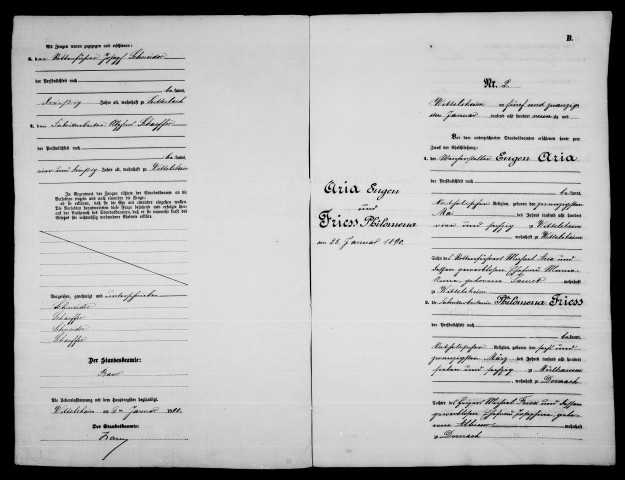 Als Zeugen waren zugezogen und erschienen:
3. den Rottenführer Josef Schneider
der Persönlichkeit nach
be kannt,
dreißig Jahre alt, wohnhaft zu Lutterbach
4. den Fabrikarbeiter Schaeffer
der Persönlichkeit nach
be kannt,
vier und dreißig Jahre alt, wohnhaft zu Wittelsheim
In Gegenwart der Zeugen richtete der Standesbeamte an die
Verlobten einzeln und nach einander die Frage:
ob sie erklären, daß sie die Ehe mit einander eingehen wollen.
Die Verlobten beantworteten diese Frage bejahend und erfolgte hierauf
der Ausspruch des Standesbeamten, daß er sie nunmehr kraft des
Gesetzes für rechtmäßig verbundene Eheleute erkläre.
Vorgelesen, genehmigt und unterschrieben
Schneider
Schaeffer
Schneider
Schaeffer
Der Standesbeamte:
Die Uebereinstimmung mit dem Hauptregister beglaubigt.
Wittelsheim am Januar
Der Standesbeamte:
Aria Eugen
und
Friess Philomena
am 25. Januar 1890.
B.
Nr. 2
Wittelsheim am fünf und zwanzig
sten Januar tausend acht hundert neunzig und
Vor dem unterzeichneten Standesbeamten erschienen heute zum
Zweck der Eheschließung:
1. der Eugen Aria
der Persönlichkeit nach
be kannt,
katholischer Religion, geboren den zwanzigsten
Mai des Jahres tausend acht hundert
vier und sechzig zu Wittelsheim
wohnhaft zu Wittelsheim
Sohn des Rottenführers Michael Aria und
dessen gewerblosen Ehefrau Maria
Anna, geborene
wohnhaft
zu Wittelsheim
2. die Fabrikarbeiterin Philomena Friess
der Persönlichkeit nach
be kannt,
katholischer Religion, geboren den sechs und
zwanzigsten März des Jahres tausend acht hundert
sieben und sechzig zu Mülhausen
wohnhaft zu Dornach
Tochter des Michael Friess und dessen
gewerblosen Ehefrau Josephine, gebo-
rene
wohnhaft
zu Dornach